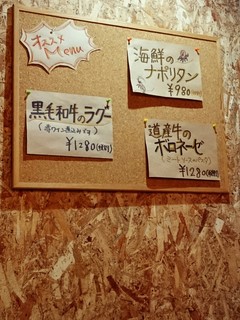 オススメ
Menu
海鮮の
ナポリタン
¥980
黒毛和牛のラグー
(赤ワイン煮込みです)
¥1280(税別)
道産牛の
ボロネーゼ
(ミートソースパスタ)
¥1280(税別)